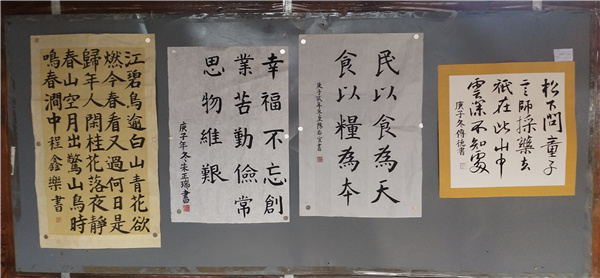 江碧鳥逾白山青花欲
燃今春看又過何日是
歸年人閑桂花落夜靜
春山空月出驚山鳥時
鳴春澗中程鑫樂書
幸福不忘創
業苦勤儉常
思物維艱
庚子年冬朱正瑞書
民以食為天
食以糧為本
松下問童子
言師採藥去
祇在此山中
雲深不知處
庚子冬傅德書